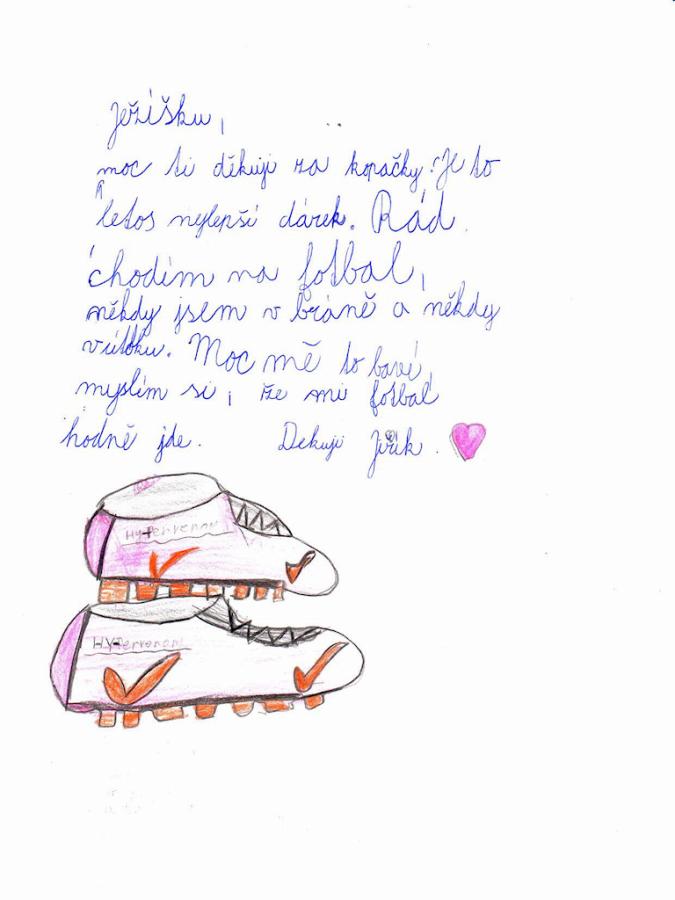 Ježíšku,
moc ti děkuji za kopačky. Je to
letos nejlepší dárek. Rád
chodím na fotbal,
někdy jsem v bráně a někdy
v útoku. Moc mě to baví,
myslím si, že mi fotbal
hodně jde. Dekuji Jiřík.
Hypervenom
Hypervenom